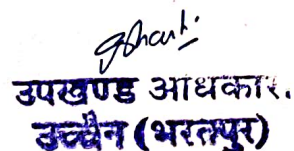 उपखण्ड आधकार.
उच्चैन (भरतपुर)